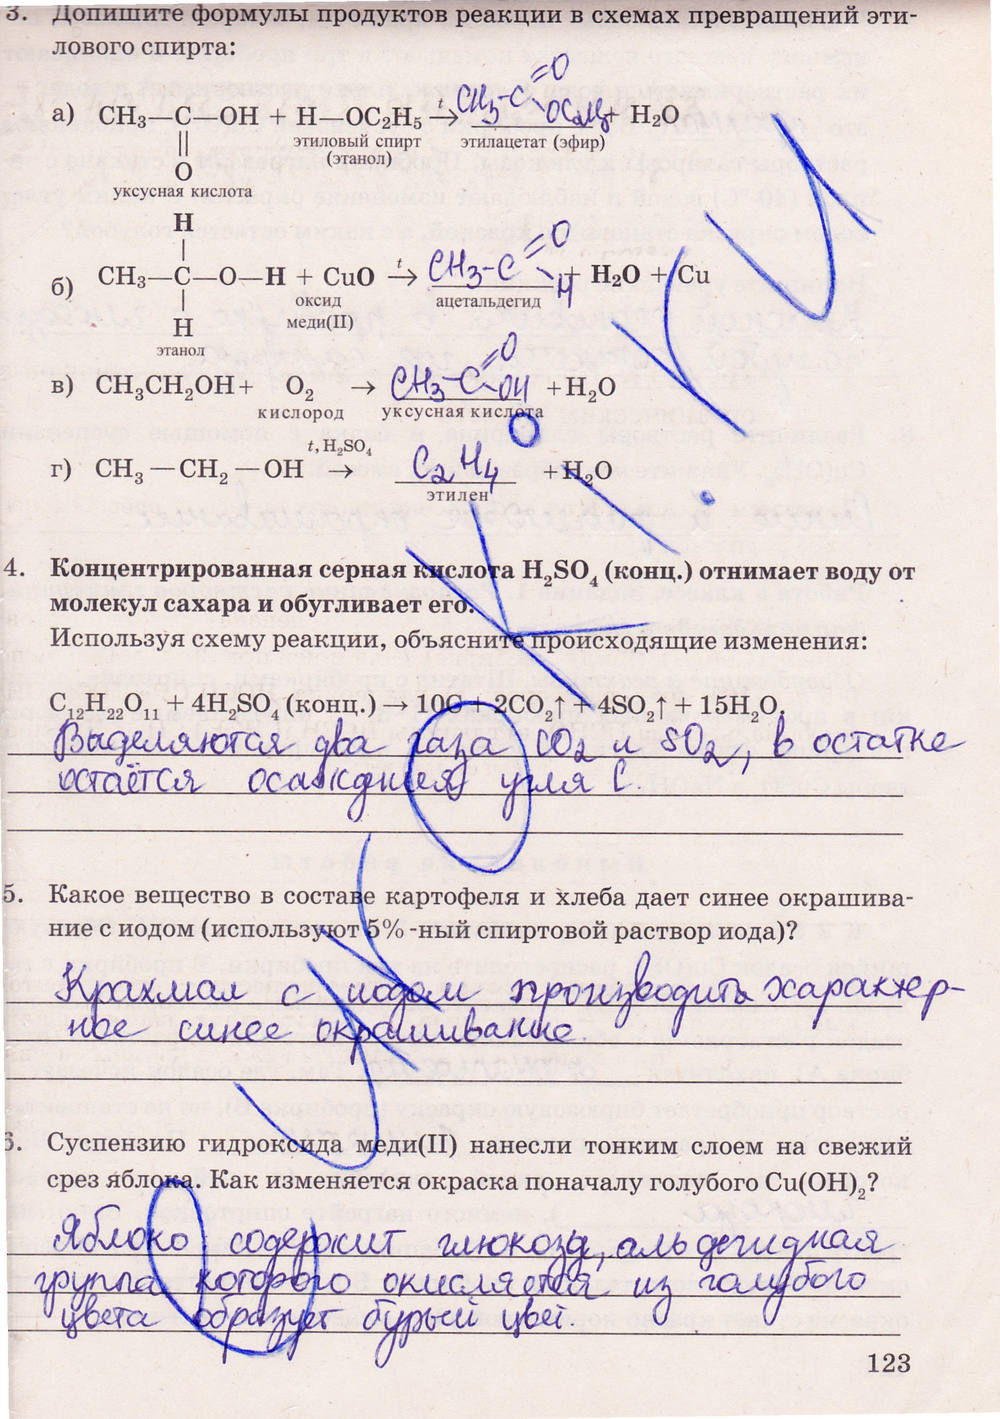 3. Допишите формулы продуктов реакции в схемах превращений эти-
лового спирта:
а) CH₃—C—OH + H—OC₂H₅ →t CH₃-C=O OC₂H₅ + H₂O
этиловый спирт этилацетат (эфир)
(этанол)
O
уксусная кислота
H
б) CH₃—C—O—H + CuO →t CH₃-C=O H + H₂O + Cu
оксид ацетальдегид
меди(II)
H
этанол
в) CH₃CH₂OH + O₂ → CH₃-C=O OH + H₂O
кислород уксусная кислота
t, H₂SO₄
г) CH₃—CH₂—OH → C₂H₄ + H₂O
этилен
4. Концентрированная серная кислота H₂SO₄ (конц.) отнимает воду от
молекул сахара и обугливает его.
Используя схему реакции, объясните происходящие изменения:
C₁₂H₂₂O₁₁ + 4H₂SO₄ (конц.) → 10C + 2CO₂↑ + 4SO₂↑ + 15H₂O.
Выделяются два газа CO₂ и SO₂, в остатке
остаётся угля C.
5. Какое вещество в составе картофеля и хлеба дает синее окрашива-
ние с иодом (используют 5%-ный спиртовой раствор иода)?
Крахмал с иодом производить характер-
ное синее окрашивание.
6. Суспензию гидроксида меди(II) нанесли тонким слоем на свежий
срез яблока. Как изменяется окраска поначалу голубого Cu(OH)₂?
Яблоко содержит глюкозу, альдегидная
группа которого окисляется, из голубого
цвета образует бурый цвет.
123